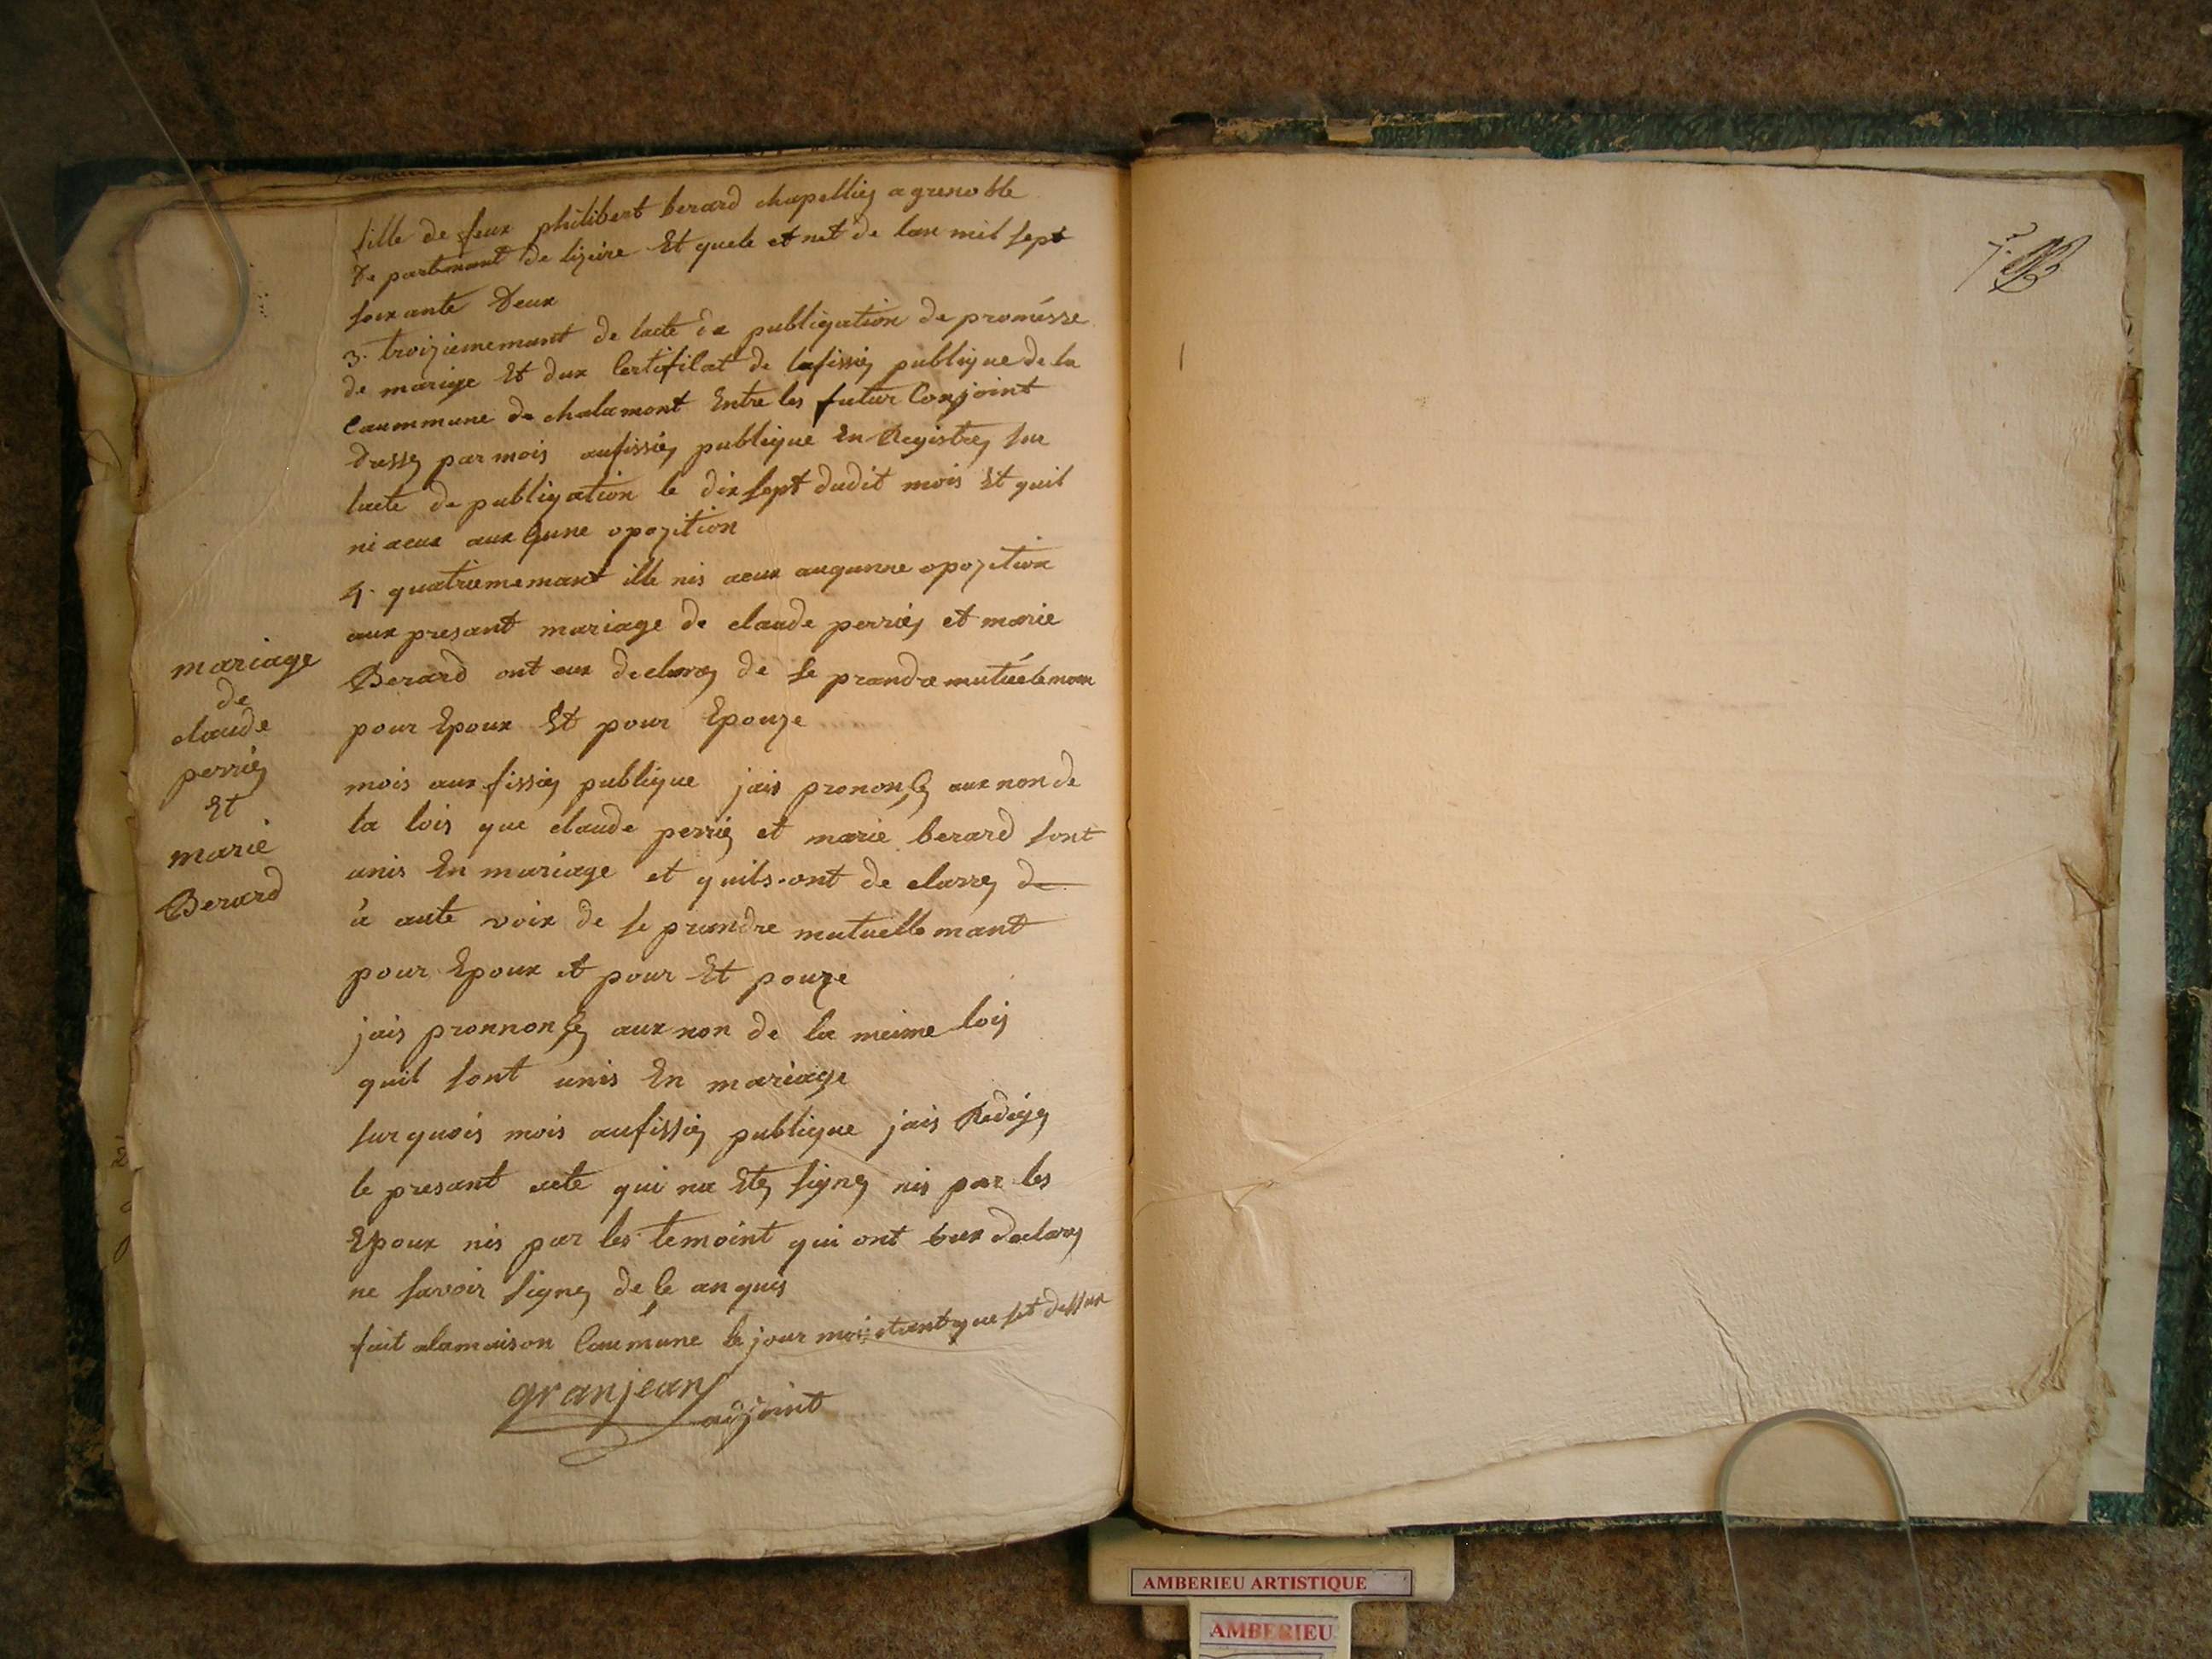 fille de feux philibert berard chapelliez a grenoble
De partemant de lizeire Et quele et net de lan mil sept
soixante Deux
3. troiziememant de lacte de publigation de promésse
de mariage Et dux Certifilat de lofissiez publique de la
Caummune de chalamont Entre les futur Conjoint
dressez par mois aufissiez publique En Registrez sur
lacte de publigation le dix sept dudit mois Et quil
ni aeux aux Qune opozition
4. quatriememant ille nis aeux augunne opozition
aux presant mariage de claude perriez et marie
Berard ont eux declarez de se prandre mutuélemen
pour Epoux Et pour Epouze
mois aux fissiez publique jais prononsez aux non de
la lois que claude perriez et marie berard sont
unis En mariage et quils ont de clarrez de
à aute voix de se prandre mutuellemant
pour Epoux et pour Et pouze
jais pronnonsez aux non de la meime lois
quil sont unis En mariage
sur quois mois aufissiez publique jais Redigez
le presant acte qui na Etez signez nis par les
Epoux nis par les temoint qui ont eux declarez
ne savoir signez de se anquis
fait alamaison Caumune le jour mois et antque set dessux
granjean adjoint
mariage
de
claude
perriez
Et
marie
Berard
AMBERIEU ARTISTIQUE
AMBERIEU